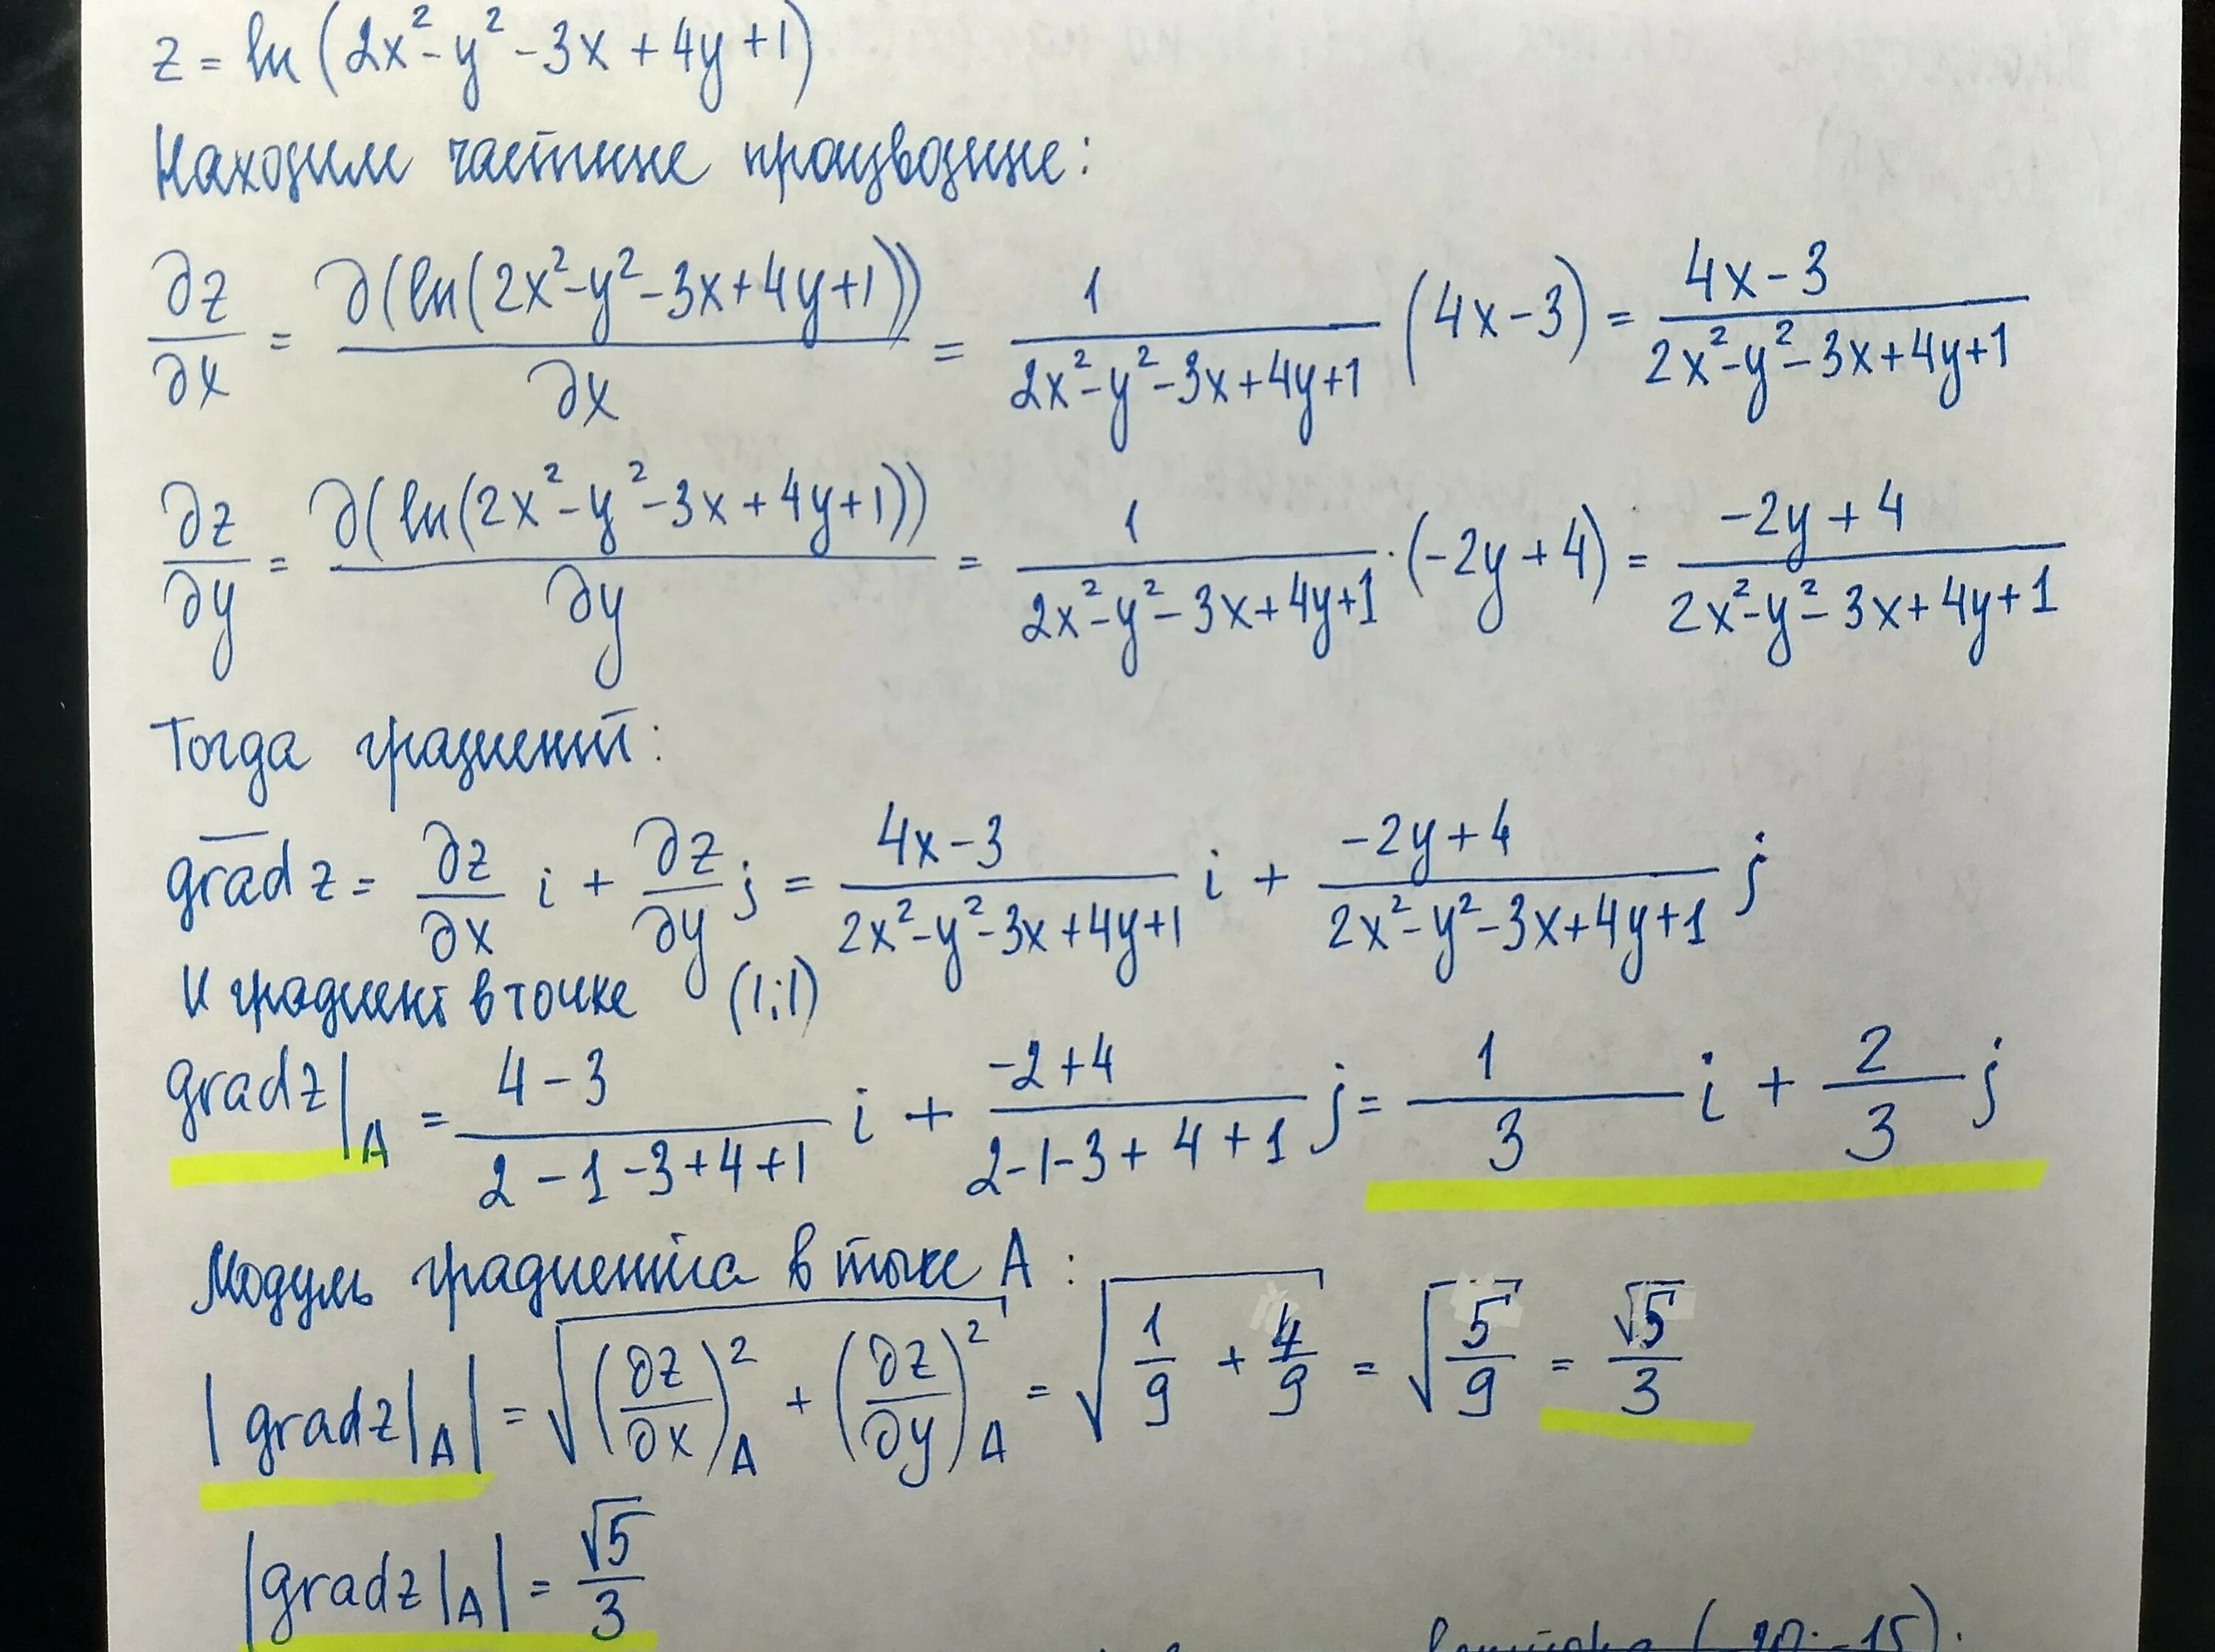 z = ln (2x² - y² - 3x + 4y + 1)
Находим частные производные:
∂z/∂x = ∂(ln(2x² - y² - 3x + 4y + 1))/∂x = 1/(2x² - y² - 3x + 4y + 1) (4x - 3) = (4x - 3)/(2x² - y² - 3x + 4y + 1)
∂z/∂y = ∂(ln(2x² - y² - 3x + 4y + 1))/∂y = 1/(2x² - y² - 3x + 4y + 1) · (-2y + 4) = (-2y + 4)/(2x² - y² - 3x + 4y + 1)
Тогда градиент:
grad z = ∂z/∂x i + ∂z/∂y j = (4x - 3)/(2x² - y² - 3x + 4y + 1) i + (-2y + 4)/(2x² - y² - 3x + 4y + 1) j
И градиент в точке (1;1)
grad z|A = (4 - 3)/(2 - 1 - 3 + 4 + 1) i + (-2 + 4)/(2 - 1 - 3 + 4 + 1) j = 1/3 i + 2/3 j
Модуль градиента в точке A:
|grad z|A| = √((∂z/∂x)²A + (∂z/∂y)²A) = √(1/9 + 4/9) = √(5/9) = √5/3
|grad z|A| = √5/3
(20; -15):